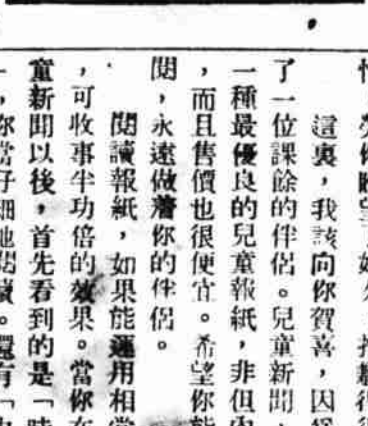 這裏，我該向你賀喜，因
了一位課餘的伴侶。兒童新聞，
一種最優良的兒童報紙，非但內
，而且售價也很便宜。希望你能
閱，永遠做着你的伴侶。
閱讀報紙，如果能運用相當
，可收事半功倍的效果。當你在
童新聞以後，首先看到的是「時
，你當仔細地閱讀。還有「